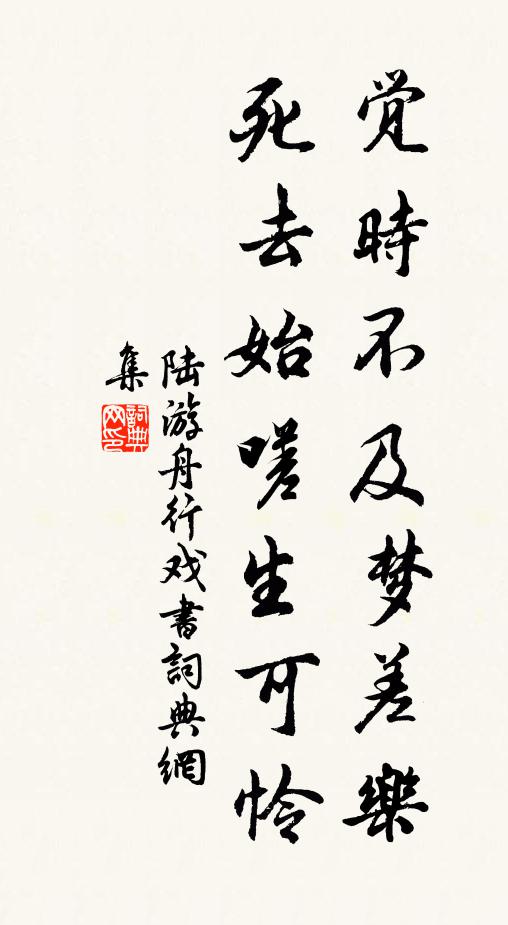 觉時不及梦差樂
死去始嗟生可怜
陆游舟行戏書詞典網
集
詞典
网印